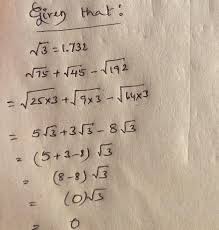 Given that:
√3 = 1.732
√75 + √45 - √192
= √25×3 + √9×3 - √64×3
= 5√3 + 3√3 - 8√3
= (5+3-8) √3
= (8-8) √3
= (0)√3
= 0